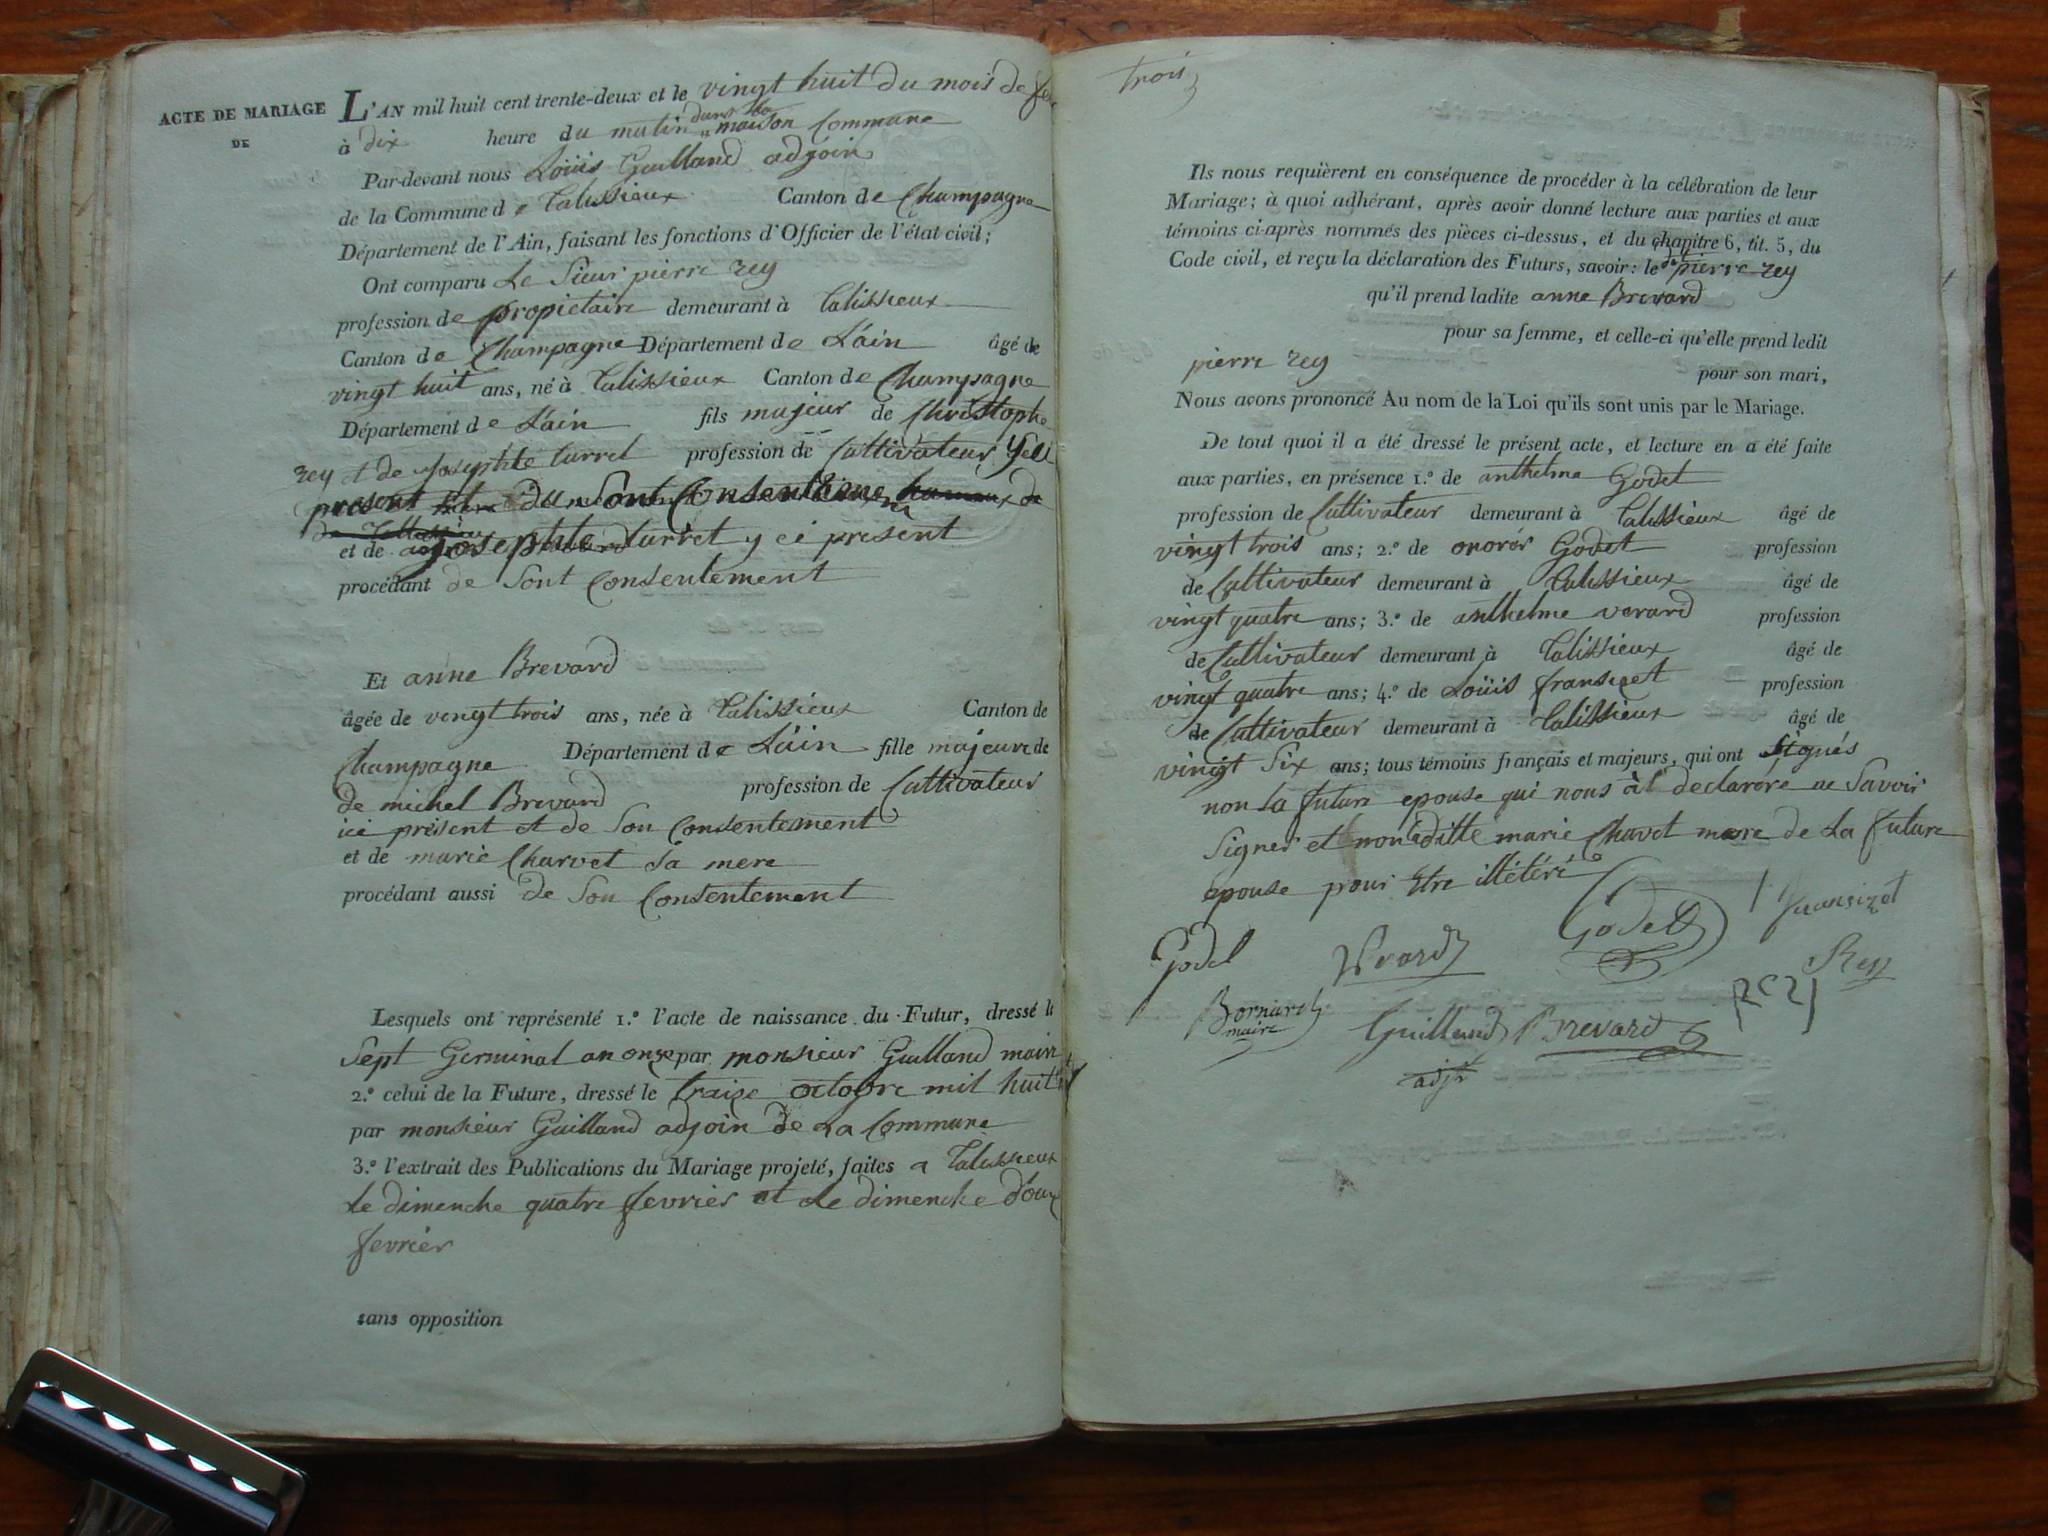 ACTE DE MARIAGE
DE
L'AN mil huit cent trente-deux et le vingt huit du mois de
à dix heure du matin dans la maison Commune
Par-devant nous Loüis Guilland adjoin
de la Commune de talissieux Canton de Champagne
Département de l'Ain, faisant les fonctions d'Officier de l'état civil;
Ont comparu Le Sieur pierre rey
profession de propietaire demeurant à talissieux
Canton de Champagne Département de L'ain âgé de
vingt huit ans, né à talissieux Canton de Champagne
Département de L'ain fils majeur de Christophe
rey et de Josephte turret profession de Cultivateur
present et du Sont Consentement
et de Josephte turret y ci present
procédant de Sont Consentement
Et anne Brevard
âgée de vengt trois ans, née à talissieux Canton de
Champagne Département de L'ain fille majeure de
de michel Brevard profession de Cultivateur
ici présent et de Son Consentement
et de marie Charvet Sa mere
procédant aussi de Son Consentement
Lesquels ont représenté 1.º l'acte de naissance du Futur, dressé le
Sept Germinal an onze par monsieur Guilland maire
2.º celui de la Future, dressé le traize octobre mil huit
par monsieur Guilland adjoin de La Commune
3.º l'extrait des Publications du Mariage projeté, faites a talissieux
Le dimenche quatre fevrier et Le dimenche
fevrier
sans opposition
trois
Ils nous requièrent en conséquence de procéder à la célébration de leur
Mariage; à quoi adhérant, après avoir donné lecture aux parties et aux
témoins ci-après nommés des pièces ci-dessus, et du chapitre 6, tit. 5, du
Code civil, et reçu la déclaration des Futurs, savoir: le dit pierre rey
qu'il prend ladite anne Brevard
pour sa femme, et celle-ci qu'elle prend ledit
pierre rey pour son mari,
Nous avons prononcé Au nom de la Loi qu'ils sont unis par le Mariage.
De tout quoi il a été dressé le présent acte, et lecture en a été faite
aux parties, en présence 1.º de anthelme Godet
profession de Cultivateur demeurant à talissieux âgé de
vingt trois ans; 2.º de onorer Godet profession
de Cultivateur demeurant à talissieux âgé de
vingt quatre ans; 3.º de anthelme verard profession
de Cultivateur demeurant à talissieux âgé de
vingt quatre ans; 4.º de Loüis franscet profession
de Cultivateur demeurant à talissieux âgé de
vingt Six ans; tous témoins français et majeurs, qui ont Signés
non La future epouse qui nous àt declarére ne Savoir
Signer et non laditte marie Chavet mere de La future
epouse pour Etre illétéré
Godet Vérard Godet Fransizet
Rey
Bornarel Guilland Brevard rey
maire
adjt